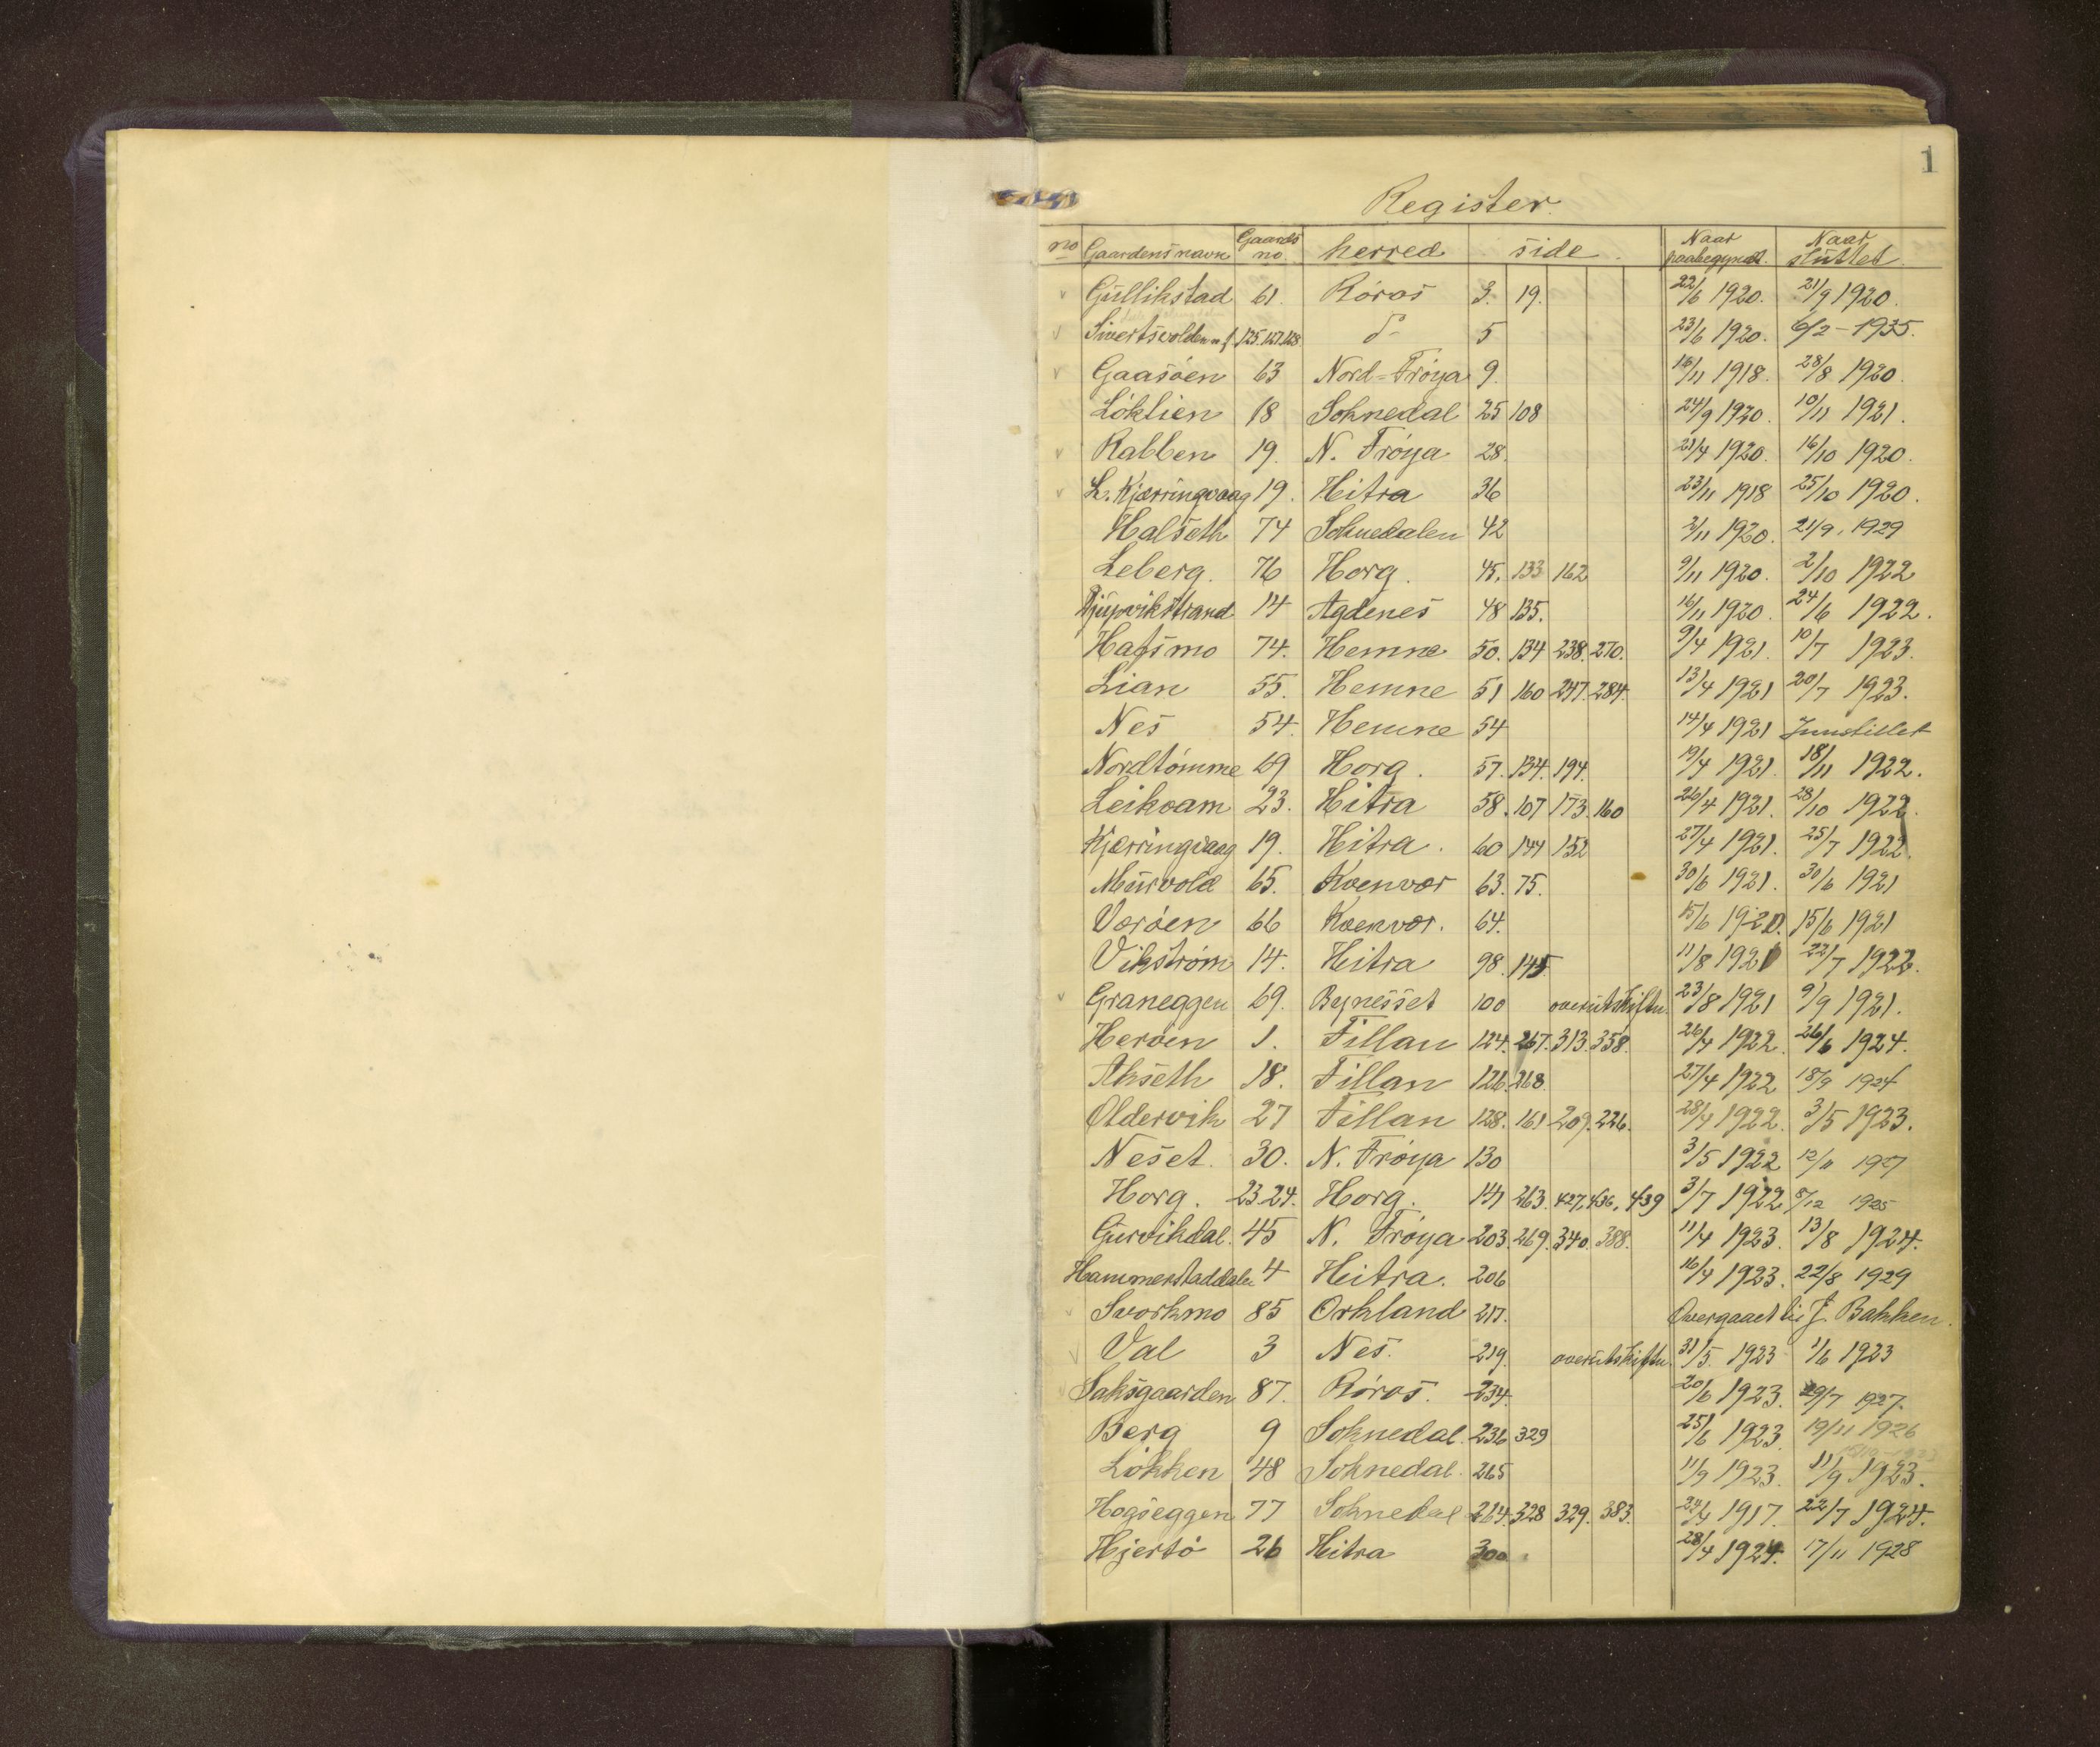 1
Register.
no Gaardens navn Gaards no. herred side. Naar paabegyndt. Naar sluttet.
Gullikstad 61. Röros 3. 19. 22/6 1920. 21/9 1920.
Sivertsvolden m.fl. 125.127.128. do 5 23/6 1920. 6/2 - 1935.
Gaasöen 63 Nord-Fröya 9. 16/11 1918. 28/8 1920.
Löklien 18 Soknedal 25 108 24/9 1920. 10/11 1921.
Rabben 19. N. Fröya 28. 21/4 1920. 16/10 1920.
L. Kjærringvaag 19. Hitra 36 23/11 1918 25/10 1920.
Halseth 74 Soknedalen 42 2/11 1920. 21/9. 1929
Leberg. 76 Horg. 45. 133 162 9/11 1920. 2/10 1922
Djupvikstrand 14 Agdenes 48 135. 16/11 1920. 24/6 1922.
Hafsmo 74. Hemne 50. 134 238. 270. 9/4 1921. 10/7 1923.
Lian 55. Hemne 51 160 247. 284. 13/4 1921 20/7 1923.
Nes 54. Hemne 54 14/4 1921 Innstillet
Nordtömme 69 Horg. 57. 134. 194. 19/4 1921. 18/11 1922.
Leikvam 23. Hitra 58. 107 173. 160 26/4 1921. 28/10 1922.
Kjærringvaag 19. Hitra. 60 144 152 27/4 1921. 25/7 1922.
Murvold 65. Kvenvær 63. 75. 30/6 1921. 30/6 1921
Væröen 66 Kvenvær. 64. 15/6 1920. 15/6 1921
Vikström 14. Hitra 98. 145 11/8 1921 22/7 1922.
Graneggen 69. Bynesset 100 overutskiftn. 23/8 1921 9/9 1921.
Heröen 1. Fillan 124. 267. 313. 358. 26/4 1922. 26/6 1924.
Akseth 18. Fillan 126. 268. 27/4 1922 18/9 1924
Oldervik 27 Fillan 128. 161 209. 226. 28/4 1922. 3/5 1923.
Neset. 30. N. Fröya 130 3/5 1922 12/11 1927
Horg. 23.24. Horg. 141 263. 427. 436. 439 3/7 1922 8/12 1925
Gurvikdal. 45 N. Fröya 203. 269. 340. 388. 11/4 1923. 13/8 1924.
Hammerstaddalen 4 Hitra. 206 16/4 1923. 22/8 1929
Svorkmo 85 Orkland 217. Overgaaet til J. Bakken.
Val 3 Nes. 219. overutskiftn. 31/5. 1923 1/6 1923
Saksgaarden 87. Röros. 234. 20/6 1923. 29/7 1927.
Berg 9 Soknedal. 236 329 25/6 1923. 19/11 1926
Lökken 48 Soknedal. 265 11/9 1923. 11/9 1923.
Hogseggen 77 Soknedal 264. 328 329. 383. 24/4 1917. 22/7 1924.
Hjertö 26 Hitra 300 28/4 1924. 17/11 1928